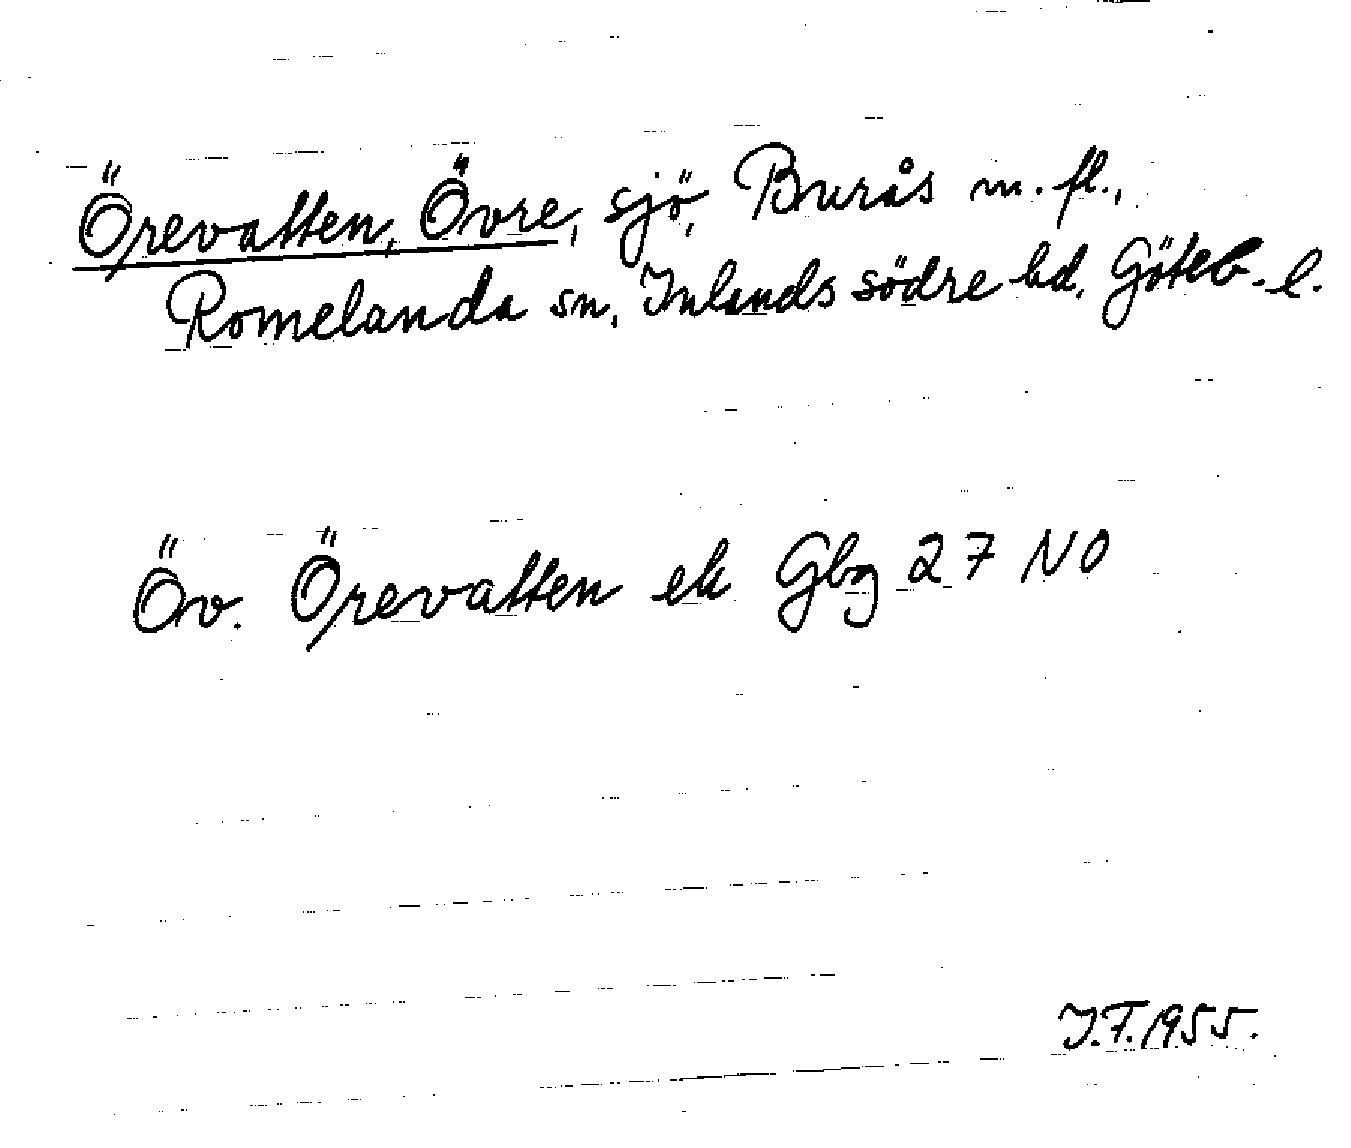 Örevatten, Övre, sjö, Burås m.fl.,
Romelanda sn, Inlands södre hd, Göteb.l.
Öv. Örevatten ek Gbg 27 NO
I.F.1955.